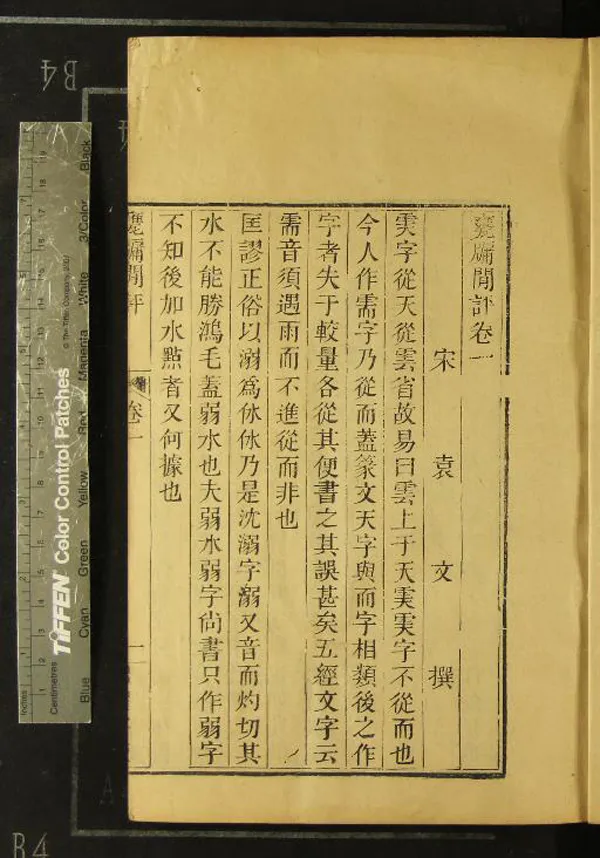 甕牖閒評卷一
宋 袁 文 撰
𩂉字從天從雲省故易曰雲上于天𩂉𩂉字不從而也
今人作需字乃從而蓋篆文天字與而字相類後之作
字者失于較量各從其便書之其誤甚矣五經文字云
需音須遇雨而不進從而非也
匡謬正俗以溺爲㲻㲻乃是沈溺字溺又音而灼切其
水不能勝鴻毛蓋弱水也夫弱水弱字尚書只作弱字
不知後加水點者又何據也
甕牖閒評 卷一 一
TIFFEN Color Control Patches
© The Tiffen Company, 2007
Blue Cyan Green Yellow Red Magenta White 3/Color Black
Centimetres
Inches
B4
B4